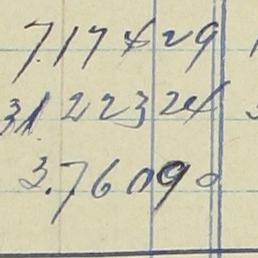 7.17429
31 22324
3.76090